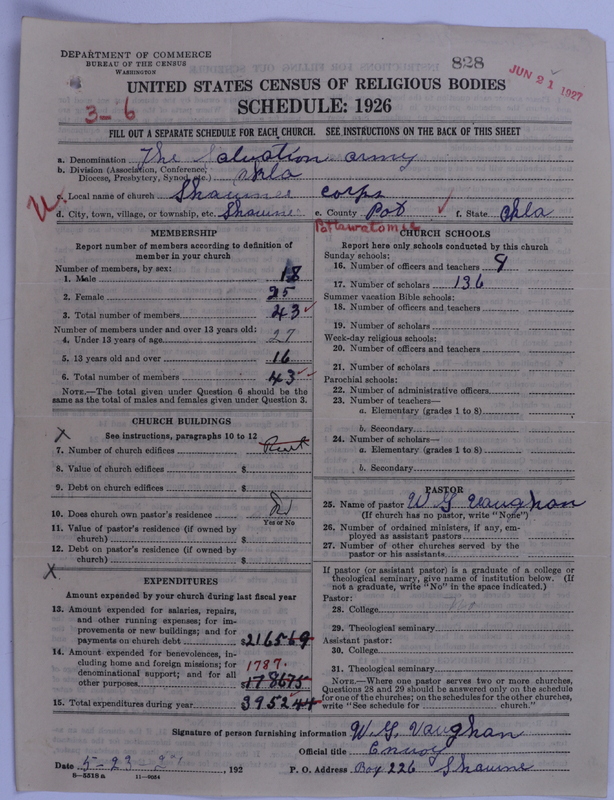 DEPARTMENT OF COMMERCE
BUREAU OF THE CENSUS
WASHINGTON
828
JUN 21 1927
UNITED STATES CENSUS OF RELIGIOUS BODIES
SCHEDULE: 1926
3-6
FILL OUT A SEPARATE SCHEDULE FOR EACH CHURCH. SEE INSTRUCTIONS ON THE BACK OF THIS SHEET
a. Denomination The Salvation army
b. Division (Association, Conference, Diocese, Presbytery, Synod, etc.) Okla
c. Local name of church Shawnee corps
d. City, town, village, or township, etc. Shawnee e. County Pot f. State Okla
Pottawatomie
MEMBERSHIP
Report number of members according to definition of
member in your church
Number of members, by sex:
1. Male 18
2. Female 25
3. Total number of members 43
Number of members under and over 13 years old:
4. Under 13 years of age 27
5. 13 years old and over 16
6. Total number of members 43
NOTE.—The total given under Question 6 should be the
same as the total of males and females given under Question 3.
CHURCH BUILDINGS
See instructions, paragraphs 10 to 12
7. Number of church edifices Rent
8. Value of church edifices $
9. Debt on church edifices $
10. Does church own pastor's residence? No
Yes or No
11. Value of pastor's residence (if owned by
church) $
12. Debt on pastor's residence (if owned by
church) $
EXPENDITURES
Amount expended by your church during last fiscal year
13. Amount expended for salaries, repairs,
and other running expenses; for im-
provements or new buildings; and for
payments on church debt $216569
14. Amount expended for benevolences, in-
cluding home and foreign missions; for
denominational support; and for all
other purposes 178675
1787.
15. Total expenditures during year 395244
CHURCH SCHOOLS
Report here only schools conducted by this church
Sunday schools:
16. Number of officers and teachers 9
17. Number of scholars 136
Summer vacation Bible schools:
18. Number of officers and teachers
19. Number of scholars
Week-day religious schools:
20. Number of officers and teachers
21. Number of scholars
Parochial schools:
22. Number of administrative officers
23. Number of teachers—
a. Elementary (grades 1 to 8)
b. Secondary
24. Number of scholars—
a. Elementary (grades 1 to 8)
b. Secondary
PASTOR
25. Name of pastor W G Vaughan
(If church has no pastor, write "None")
26. Number of ordained ministers, if any, em-
ployed as assistant pastors
27. Number of other churches served by the
pastor or his assistants
If pastor (or assistant pastor) is a graduate of a college or
theological seminary, give name of institution below. (If
not a graduate, write "No" in the space indicated.)
Pastor:
28. College
29. Theological seminary
Assistant pastor:
30. College
31. Theological seminary
NOTE.—Where one pastor serves two or more churches,
Questions 28 and 29 should be answered only on the schedule
for one of the churches; on the schedules for the other churches,
write "See schedule for church."
Signature of person furnishing information W. G. Vaughan
Official title Envoy
Date 5-23-, 192 P. O. Address Box 226 Shawnee
8—5518a 11—9024